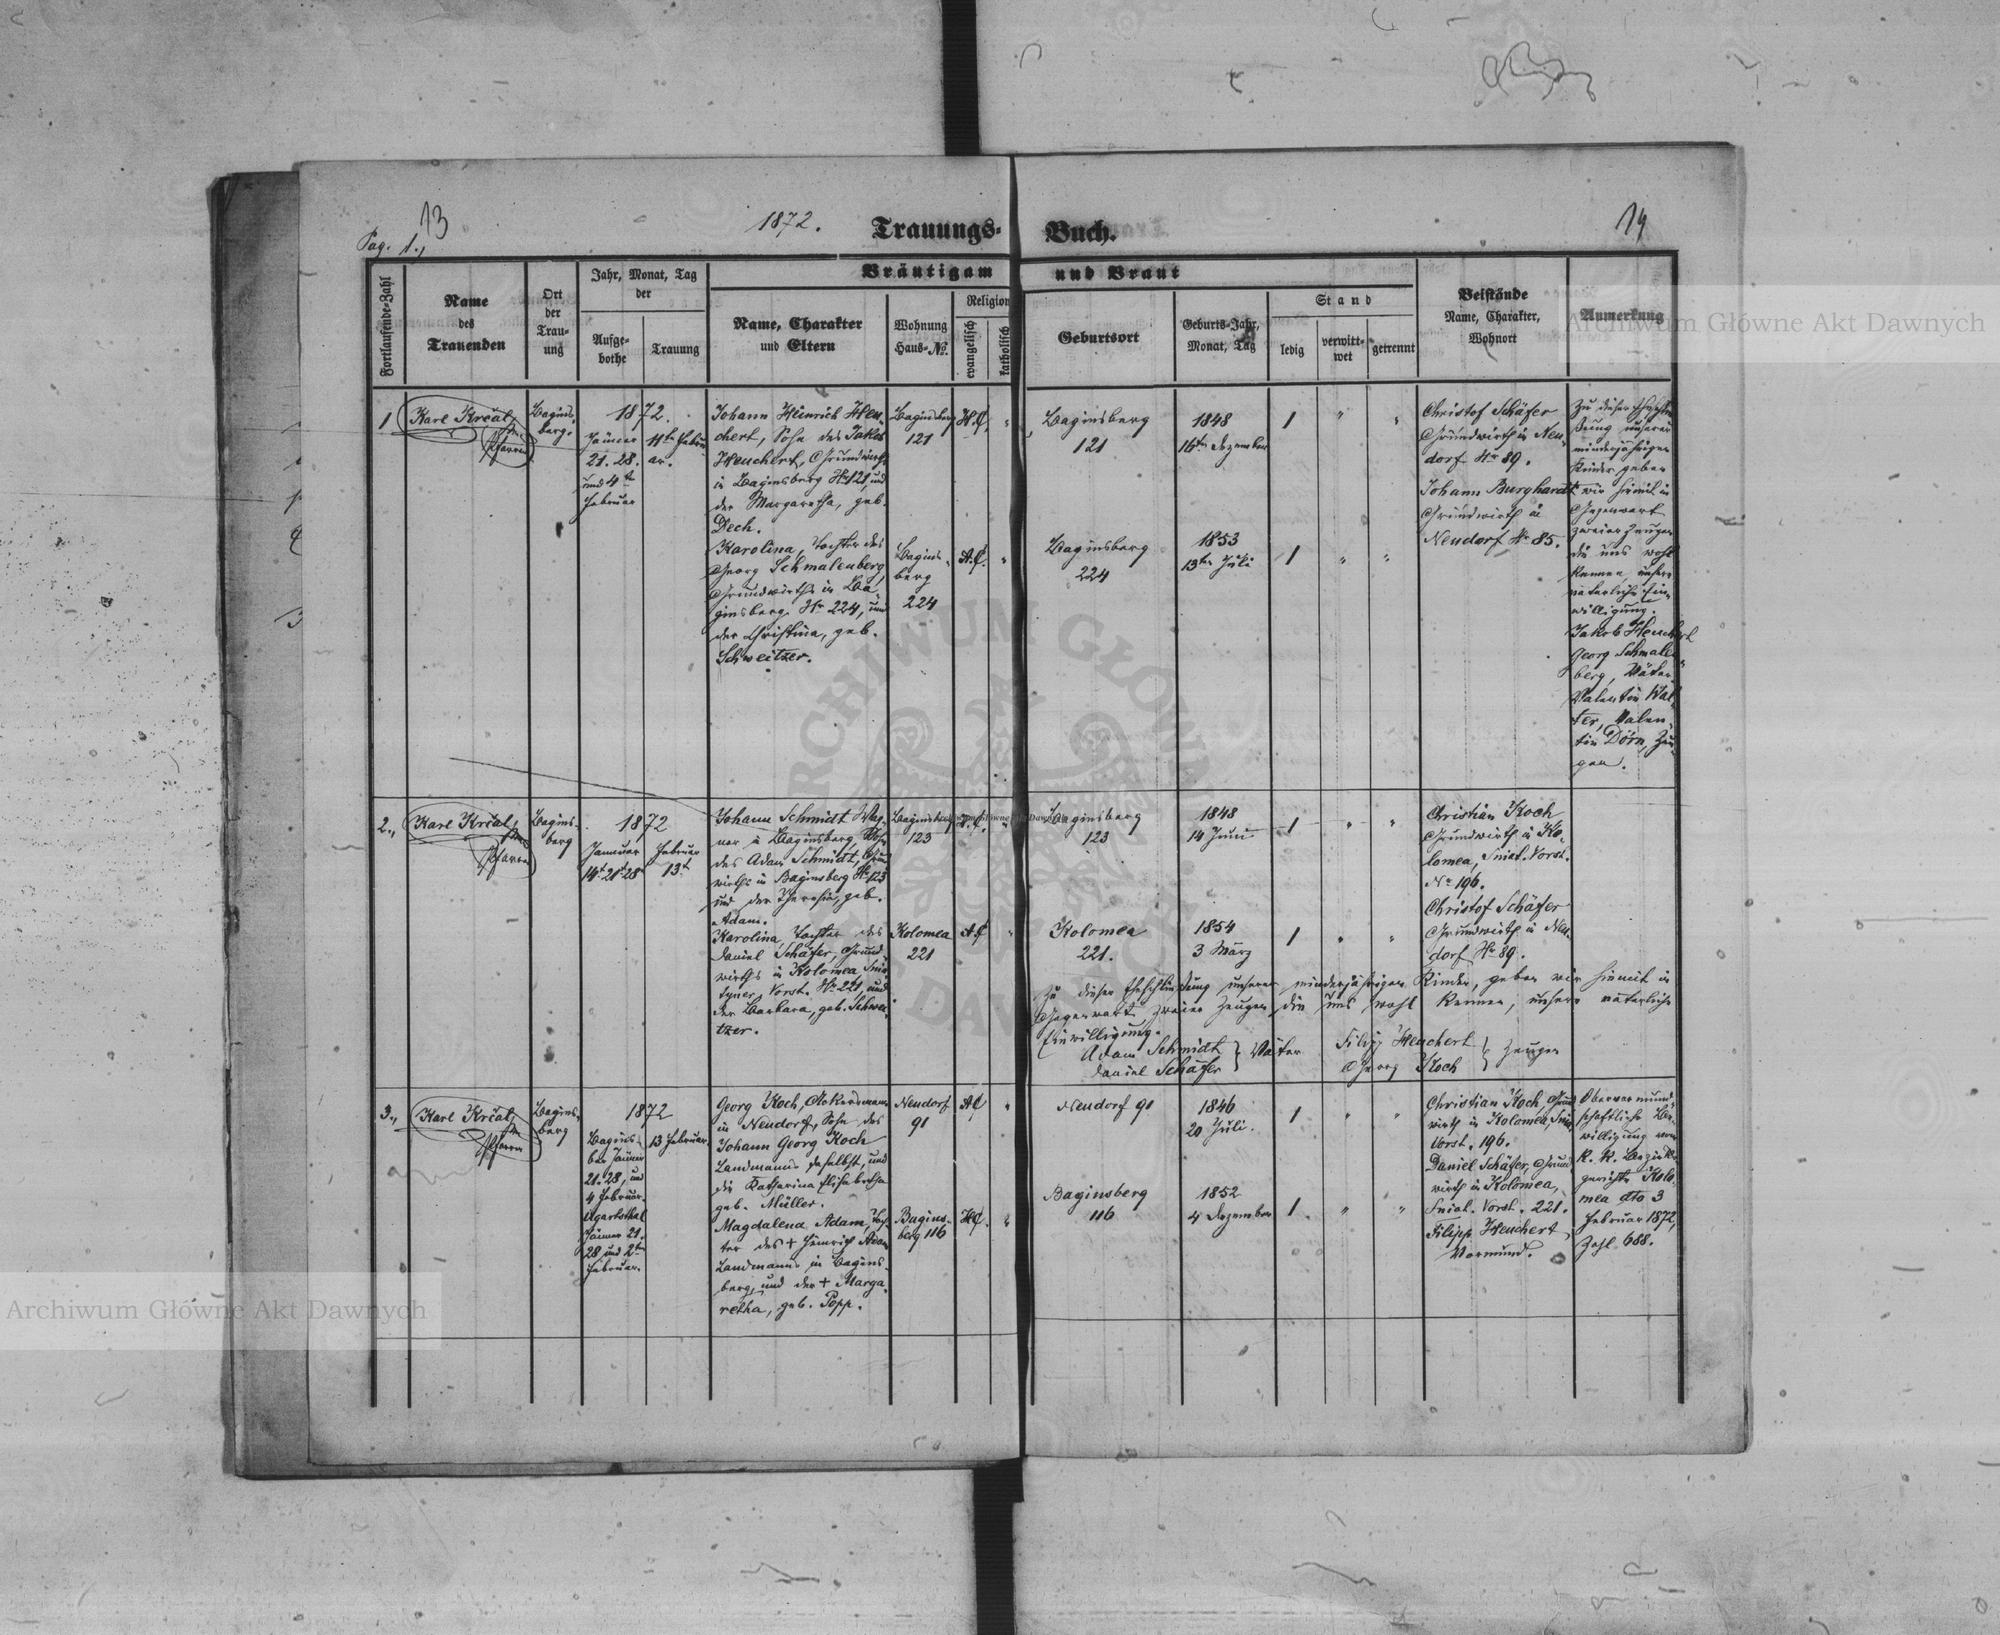 13
Pag. 1.,
1872.
Trauungs-
Buch.
14
Fortlaufende-Zahl
Name
des
Trauenden
Ort
der
Trau-
ung
Jahr, Monat, Tag
der
Aufge-
bothe
Trauung
Bräutigam
und Braut
Name, Charakter
und Eltern
Wohnung
Haus-No.
Religion
evangelisch
katholisch
Geburtsort
Geburts-Jahr,
Monat, Tag
Stand
ledig
verwitt-
wet
getrennt
Beistände
Name, Charakter,
Wohnort
Anmerkung
1
Karl Krčal,
Pfarrer
Bagins-
berg.
1872.
Jänner
21. 28.
und 4te
Februar
11te Febru-
ar.
Johann Heinrich Heu-
chert, Sohn des Jakob
Heuchert, Grundwirth
in Baginsberg Nr 121, und
der Margaretha, geb.
Dech.
Baginsberg
121
H.C.
"
Baginsberg
121
1848
16ten Dezember
1
"
"
Karolina, Tochter des
Georg Schmalenberg
Grundwirths in Ba-
ginsberg Nr 224, und
der Christina, geb.
Schweitzer.
Bagins-
berg
224
A.C.
"
Baginsberg
224
1853
13ten Juli
1
"
"
Christof Schäfer
Grundwirth in Neu-
dorf Nr 89.
Johann Burghardt
Grundwirth in
Neudorf Nr 85.
Zu dieser Eheschlie-
ßung unserer
minderjährigen
Kinder geben
wir hiemit in
Gegenwart
zweier Zeugen
die uns wohl
kennen unsere
väterliche Ein-
willigung.
Jakob Heuchert
Georg Schmalen-
berg, Väter
Valentin Wal-
ter, Valen-
tin Dörn, Zeu-
gen.
2.,
Karl Krčal,
Pfarrer
Bagins-
berg
1872
Januar
14t 21t 28
Februar
13t
Johann Schmidt Wag-
ner in Baginsberg, Sohn
des Adam Schmidt, Grund-
wirths in Baginsberg Nr 123
und der Theresia, geb.
Adam.
Baginsberg
123
"
Baginsberg
123
1848
14 Juni
1
"
"
Karolina, Tochter des
Daniel Schäfer, Grund-
wirths in Kolomea Snia-
tyner Vorst. Nr 221, und
der Barbara, geb. Schwei-
tzer.
Kolomea
221
A.C
"
Kolomea
221.
1854
3 März
1
"
"
Christian Koch
Grundwirth in Ko-
lomea, Sniat. Vorst.
Nr 196.
Christof Schäfer
Grundwirth in Neu-
dorf Nr 89.
Zu dieser Eheschließung unserer minderjährigen Kinder, geben wir hiemit in
Gegenwart zweier Zeugen, die uns wohl kennen, unsere väterliche
Einwilligung.
Adam Schmidt
Daniel Schäfer
} Väter
Filipp Heuchert
Georg Koch
} Zeugen
3.,
Karl Krčal,
Pfarrer
Bagins-
berg
1872
Bagins-
berg Jänner
21. 28, und
4 Februar.
Ugartsthal
Jänner 21.
28 und 2ten
Februar.
13 Februar.
Georg Koch, Ackersmann
in Neudorf, Sohn des
Johann Georg Koch
Landmanns daselbst, und
die Katharina Elisabetha
geb. Müller.
Neudorf
91
AC
"
Neudorf 91
1846
20 Juli.
1
"
"
Magdalena Adam, Toch-
ter des + Heinrich Adam
Landmanns in Bagins-
berg, und der + Marga-
retha, geb. Popp.
Bagins-
berg 116
H.C.
"
Baginsberg
116
1852
4 Dezember
1.
"
"
Christian Koch, Grund-
wirth in Kolomea, Snia.
Vorst. 196.
Daniel Schäfer, Grund-
wirth in Kolomea,
Sniat. Vorst. 221.
Filipp Heuchert
Vormund.
Obervormund-
schaftliche Be-
willigung vom
k. k. Bezirks-
gericht Kolo-
mea dto 3
Februar 1872,
Zahl 688.
Archiwum Główne Akt Dawnych
Archiwum Główne Akt Dawnych